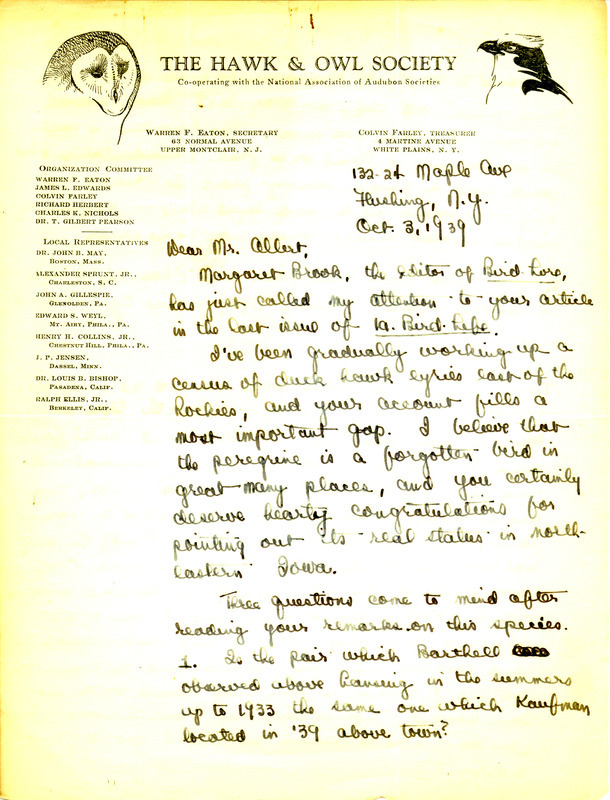 THE HAWK & OWL SOCIETY
Co-operating with the National Association of Audubon Societies
WARREN F. EATON, SECRETARY
63 NORMAL AVENUE
UPPER MONTCLAIR, N. J.
COLVIN FARLEY, TREASURER
4 MARTINE AVENUE
WHITE PLAINS, N. Y.
ORGANIZATION COMMITTEE
WARREN F. EATON
JAMES L. EDWARDS
COLVIN FARLEY
RICHARD HERBERT
CHARLES K. NICHOLS
DR. T. GILBERT PEARSON
LOCAL REPRESENTATIVES
DR. JOHN B. MAY,
BOSTON, MASS.
ALEXANDER SPRUNT, JR.,
CHARLESTON, S. C.
JOHN A. GILLESPIE,
GLENOLDEN, PA.
EDWARD S. WEYL,
MT. AIRY, PHILA., PA.
HENRY H. COLLINS, JR.,
CHESTNUT HILL, PHILA., PA.
J. P. JENSEN,
DASSEL, MINN.
DR. LOUIS B. BISHOP,
PASADENA, CALIF.
RALPH ELLIS, JR.,
BERKELEY, CALIF.
132-24 Maple Ave
Flushing, N.Y.
Oct. 3, 1939
Dear Mr. Allert,
Margaret Brook, the editor of Bird-Lore,
has just called my attention to your article
in the last issue of Ia. Bird-Life.
I've been gradually working up a
census of duck hawk eyries east of the
Rockies, and your account fills a
most important gap. I believe that
the peregrine is a forgotten bird in
great many places, and you certainly
deserve hearty congratulations for
pointing out its real status in north-
eastern Iowa.
Three questions come to mind after
reading your remarks on this species.
1. Is the pair which Bartnell
observed above Lansing in the summers
up to 1933 the same one which Kaufman
located in '39 above town?